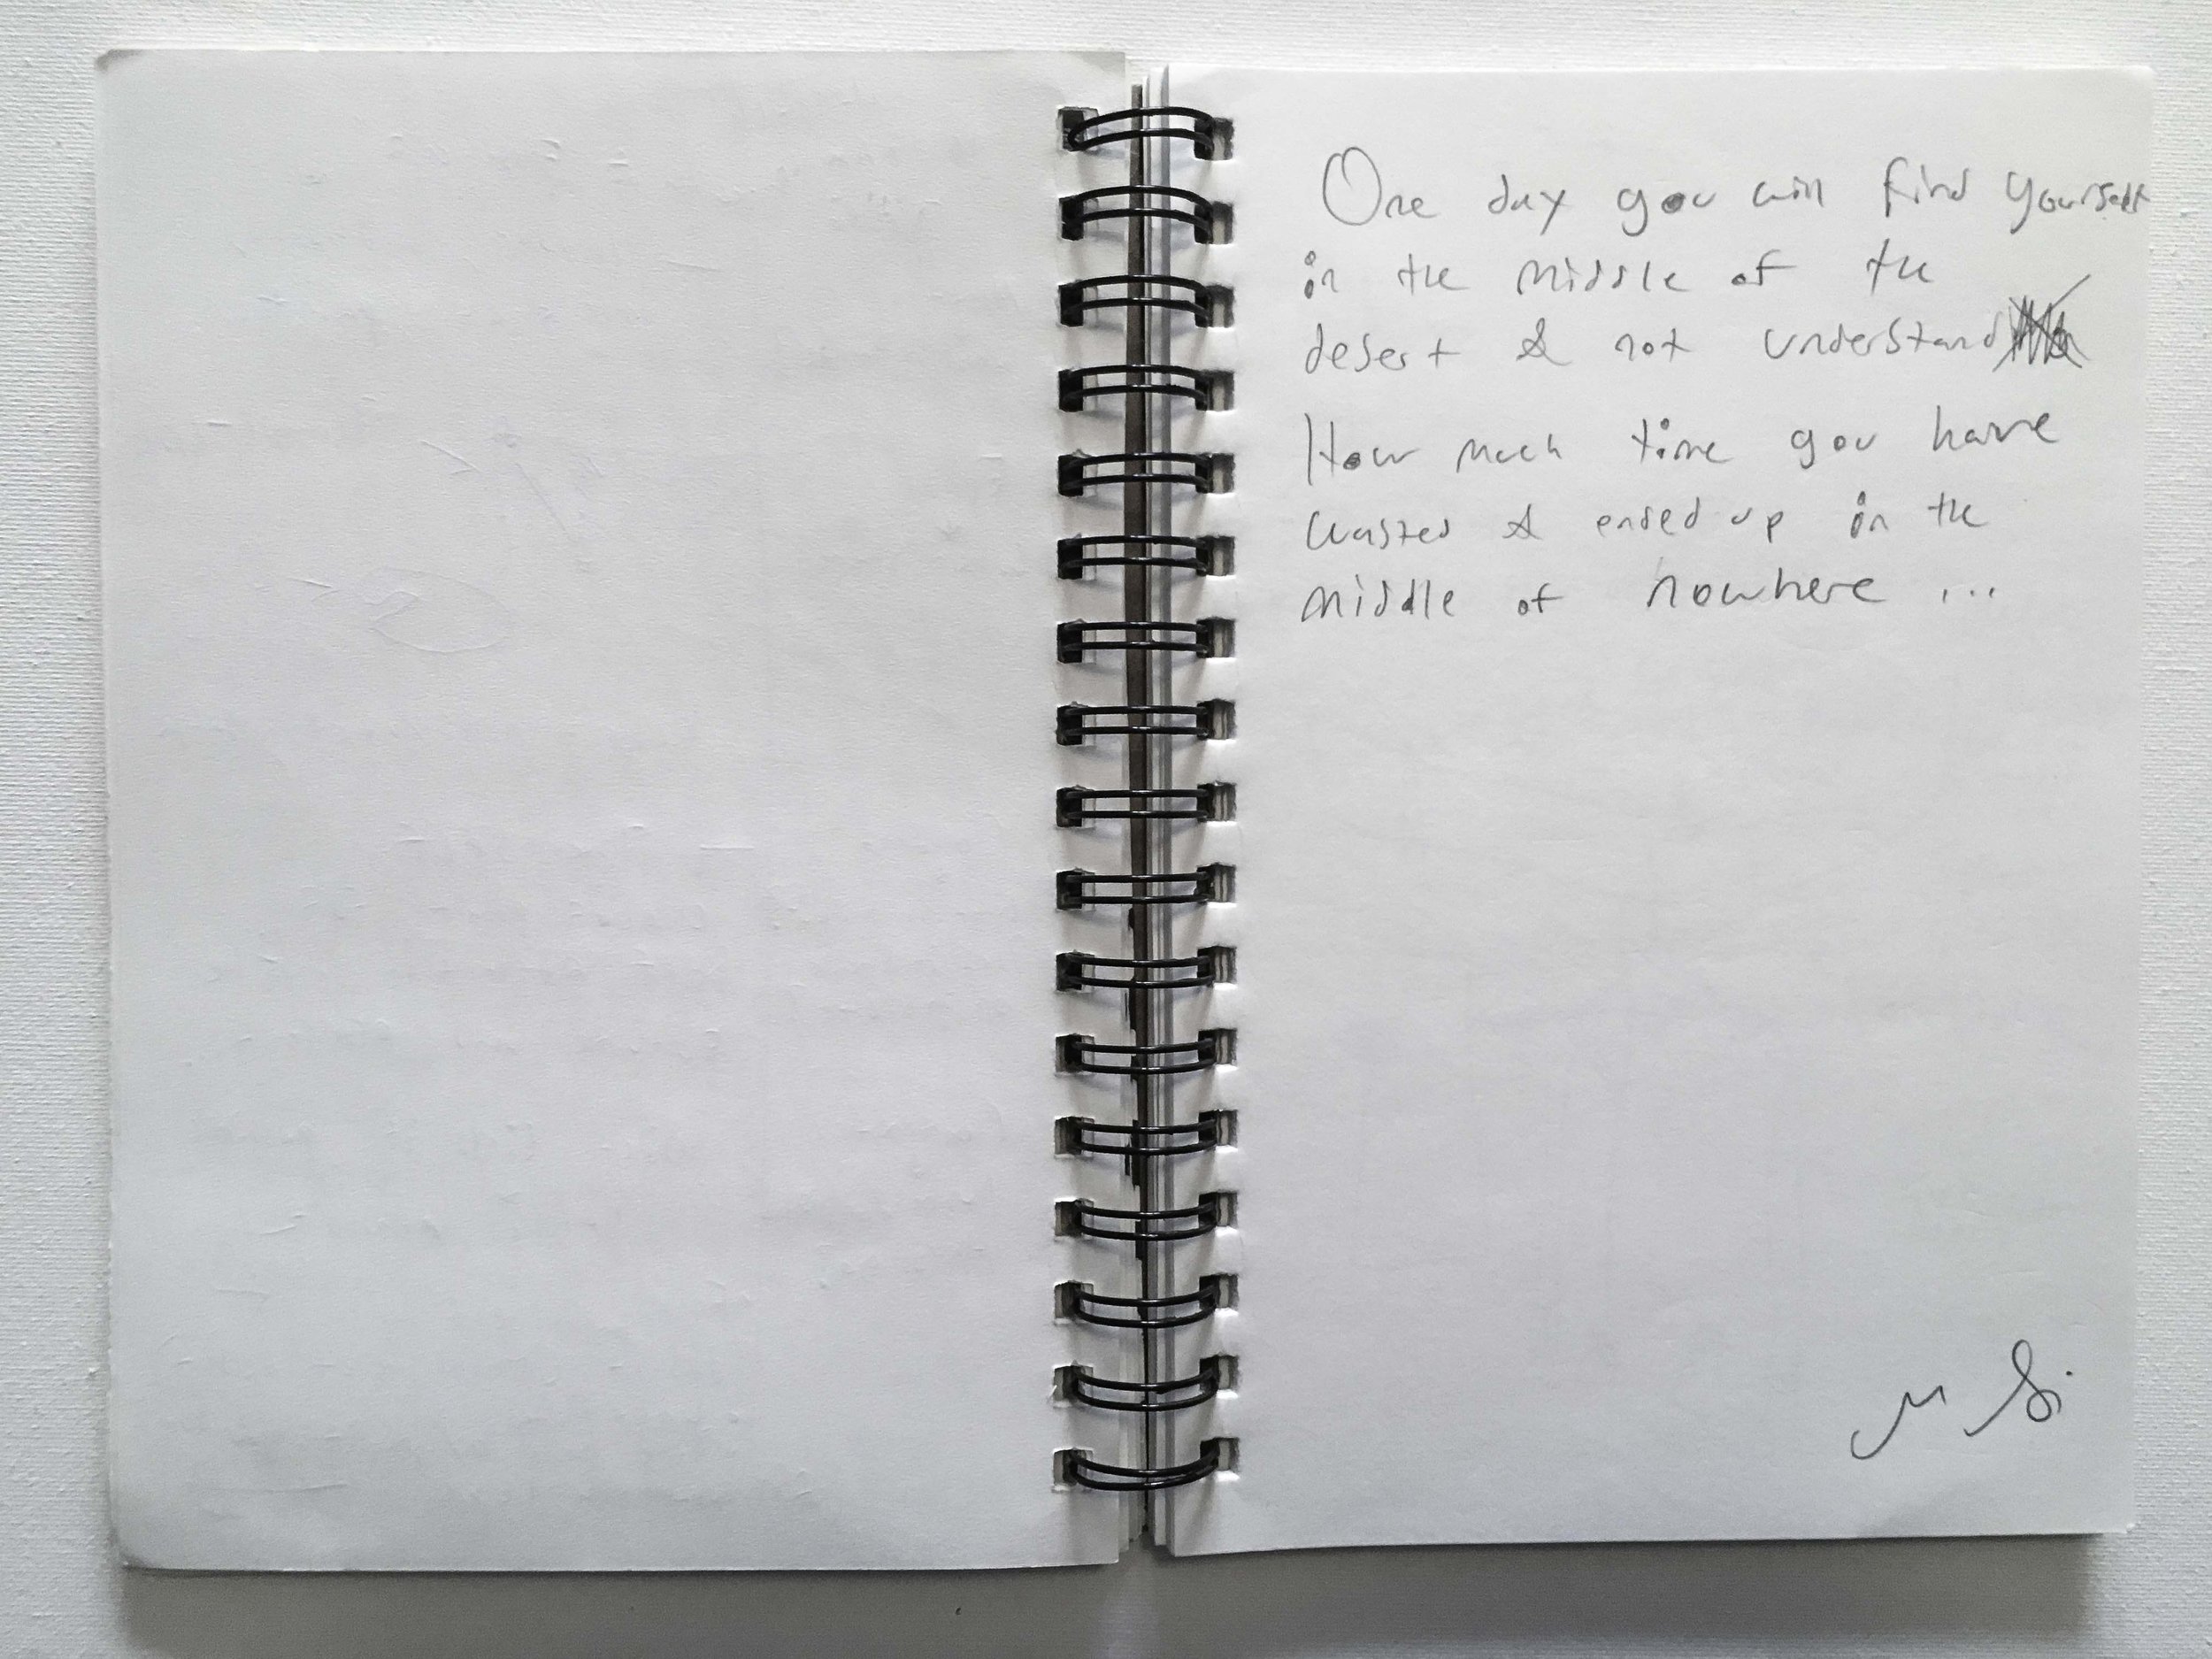 One day you will find yourself
in the middle of the
desert & not understand
How much time you have
wasted & ended up in the
middle of nowhere ...